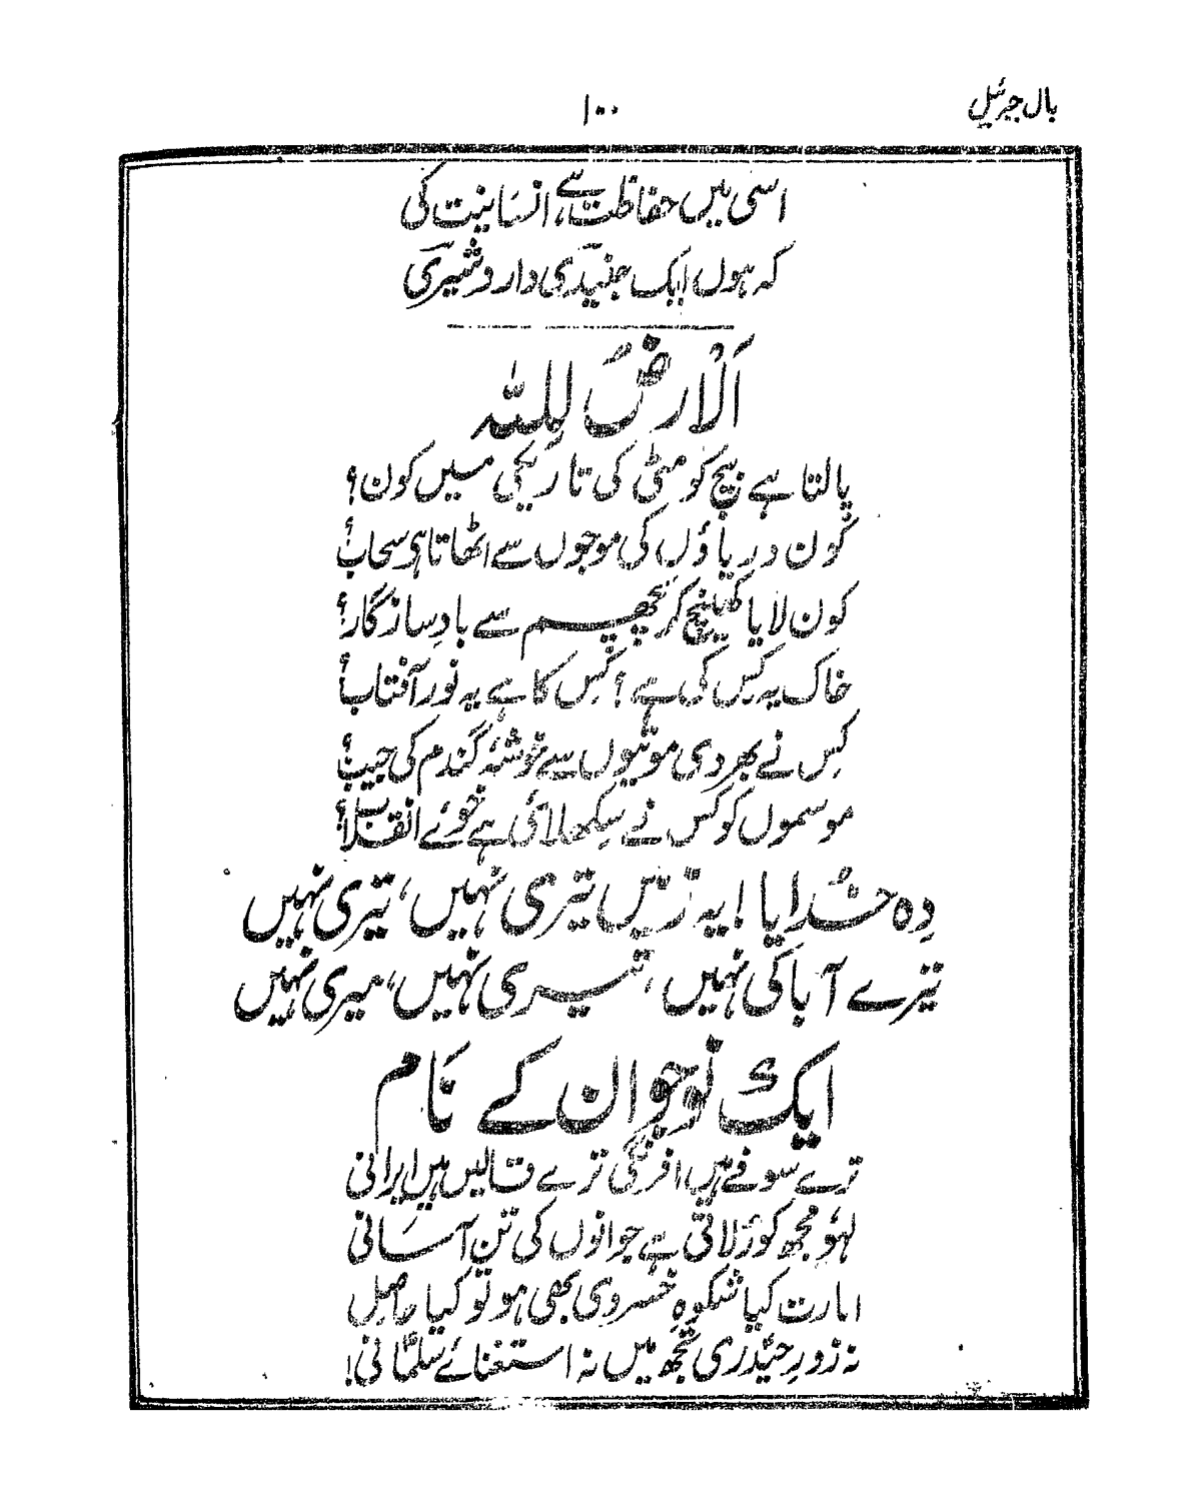 بال جبرئیل
۱۰۰
اسی میں حفاظت ہے، انسانیت کی
کہ ہوں ایک جنیدی و اردشیری
اَلْارضُ لِلّٰہ
پالتا ہے بیج کو مٹی کی تاریکی میں کون؟
کون دریاؤں کی موجوں سے اٹھاتا ہی سحاب؟
کون لایا کھینچ کر پچھم سے بادِ سازگار؟
خاک یہ کس کی ہے؟ کس کا ہے یہ نور آفتاب؟
کِس نے بھر دی موتیوں سے خوشۂ گندم کی جیب؟
موسموں کو کس نے سکھلائی ہے خوئے انقلاب؟
دِہ خُدایا! یہ زمیں تیری نہیں، تیری نہیں
تیرے آبا کی نہیں، تیری نہیں، میری نہیں
ایک نوجوان کے نام
ترے سوفے ہیں افرنگی ترے قالیں ہیں ایرانی
لہُو مجھ کو رُلاتی ہے جوانوں کی تن آسانی
امارت کیا شکوہِ خسروی بھی ہو تو کیا حاصل
نہ زورِ حیدری تجھ میں نہ استغنائے سلمانی!